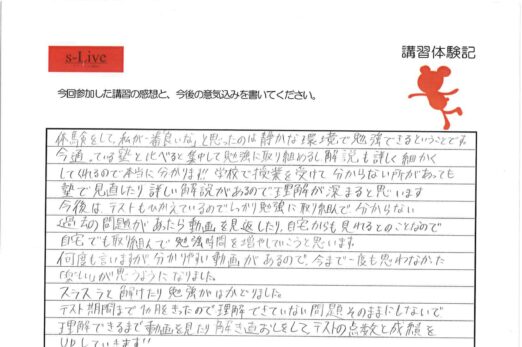 s-Live
講習体験記
今回参加した講習の感想と、今後の意気込みを書いてください。
体験をして、私が一番良いな、と思ったのは静かな環境で勉強できるということです。
今通っている塾と比べると集中して勉強に取り組めるし解説も詳しく細かく
してくれるので本当に分かります!! 学校で授業を受けて分からない所があっても
塾で見直したり詳しい解説があるので理解が深まると思います
今後はテストもひかえているのでしっかり勉強に取り組んで分からない
過去の問題があったら動画を見返したり、自宅からも見れるとのことなので
自宅でも取り組んで勉強時間を増やしていこうと思います。
何度も言いますが分かりやすい動画があるので、今まで一度も思わなかった
「楽しい」が思うようになりました。
スラスラと解けたり勉強がはかどりました。
テスト期間まで1か月をきったので理解できていない問題そのままにしないで
理解できるまで動画を見たり解き直おしをしてテストの点数と成績を
UPしていきます!!